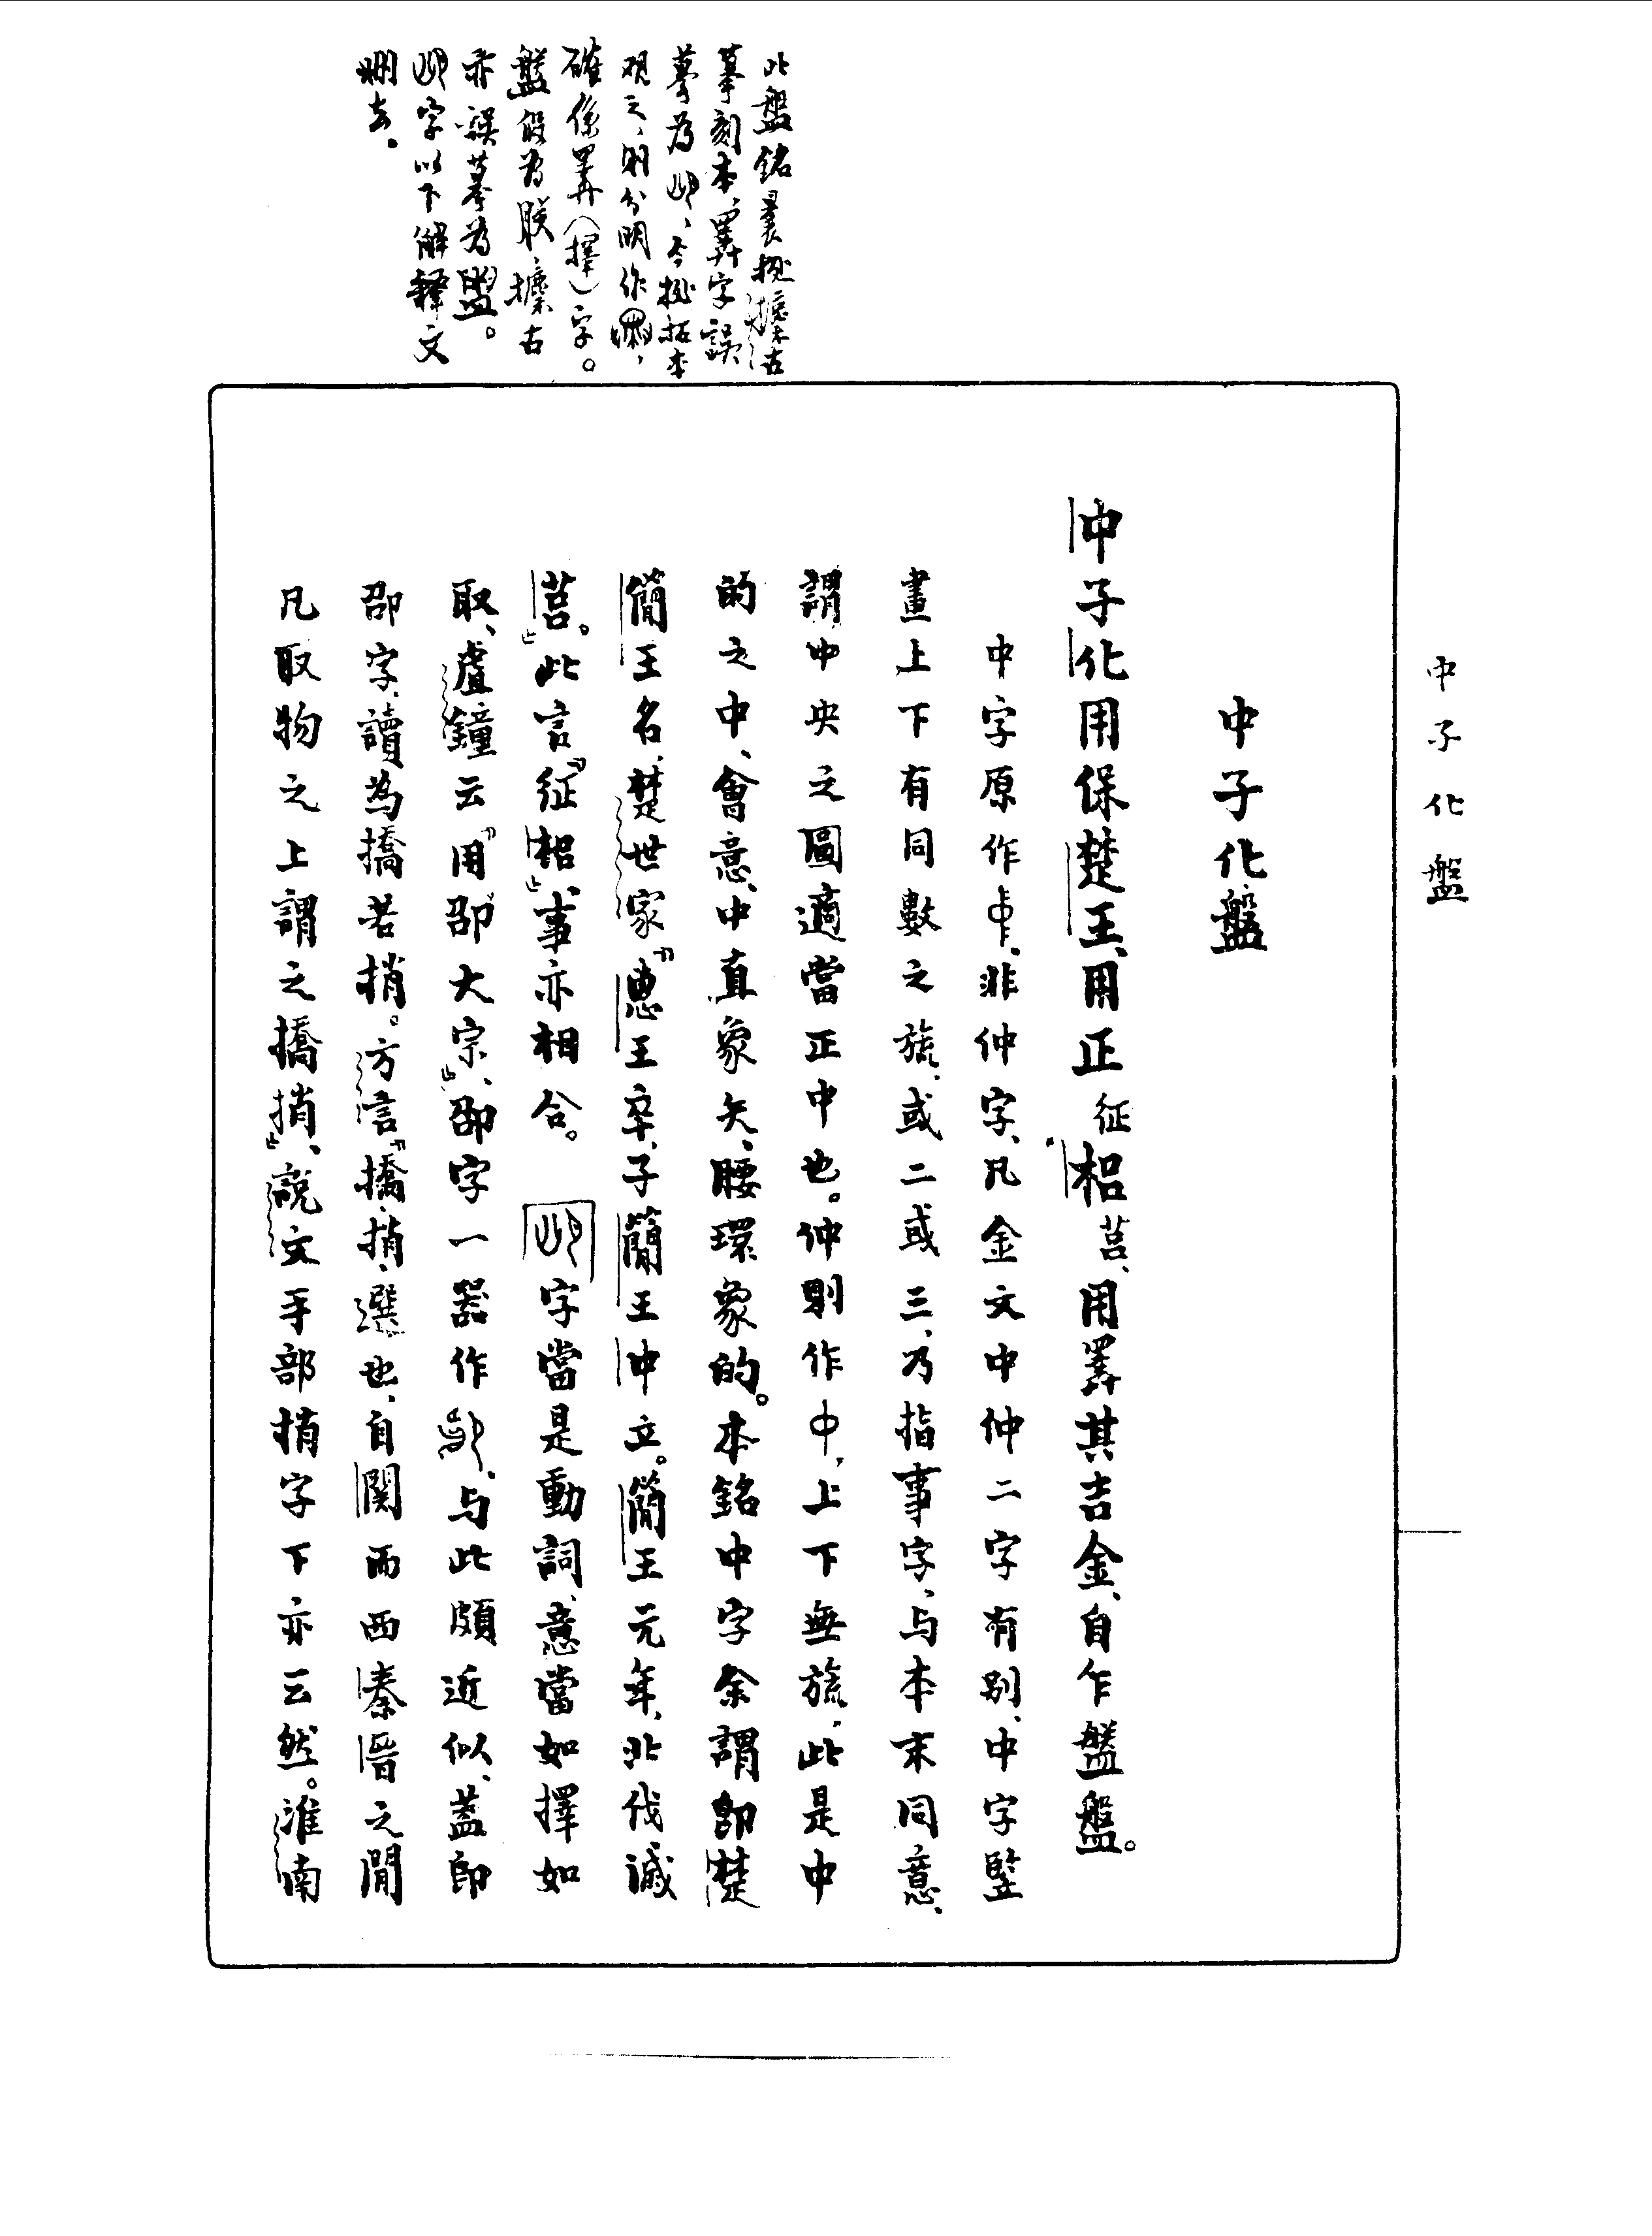 中子化盤
中子化盤
中子化用保楚王、用正征梠莒、用睪其吉金、自乍盤盤。
中字原作、非仲字、凡金文中仲二字有别、中字竪
畫上下有同數之旒、或二或三、乃指事字、与本末同意、
謂中央之圆適當正中也。仲則作中、上下無旒、此是中
的之中、會意、中直象矢、腰環象的。本銘中字余謂即楚
簡王名、楚世家「惠王卒、子簡王中立。簡王元年、北伐滅
莒。」此言「征梠」、事亦相合。字當是動詞、意當如擇如
取、虘鐘云「用卲大宗」、卲字一器作、与此頗近似、蓋即
卲字、讀為撟若捎。方言「撟、捎、選也、自關而西秦晋之間
凡取物之上謂之撟捎」、說文手部捎字下亦云然。淮南
此盤銘曩据攈古
摹刻本、睪字誤
摹為、今据拓本
观之、則分明作、
確係睪(擇)字。
盤假為朕、攈古
亦誤摹為盥。
字以下解釋文
刪去。